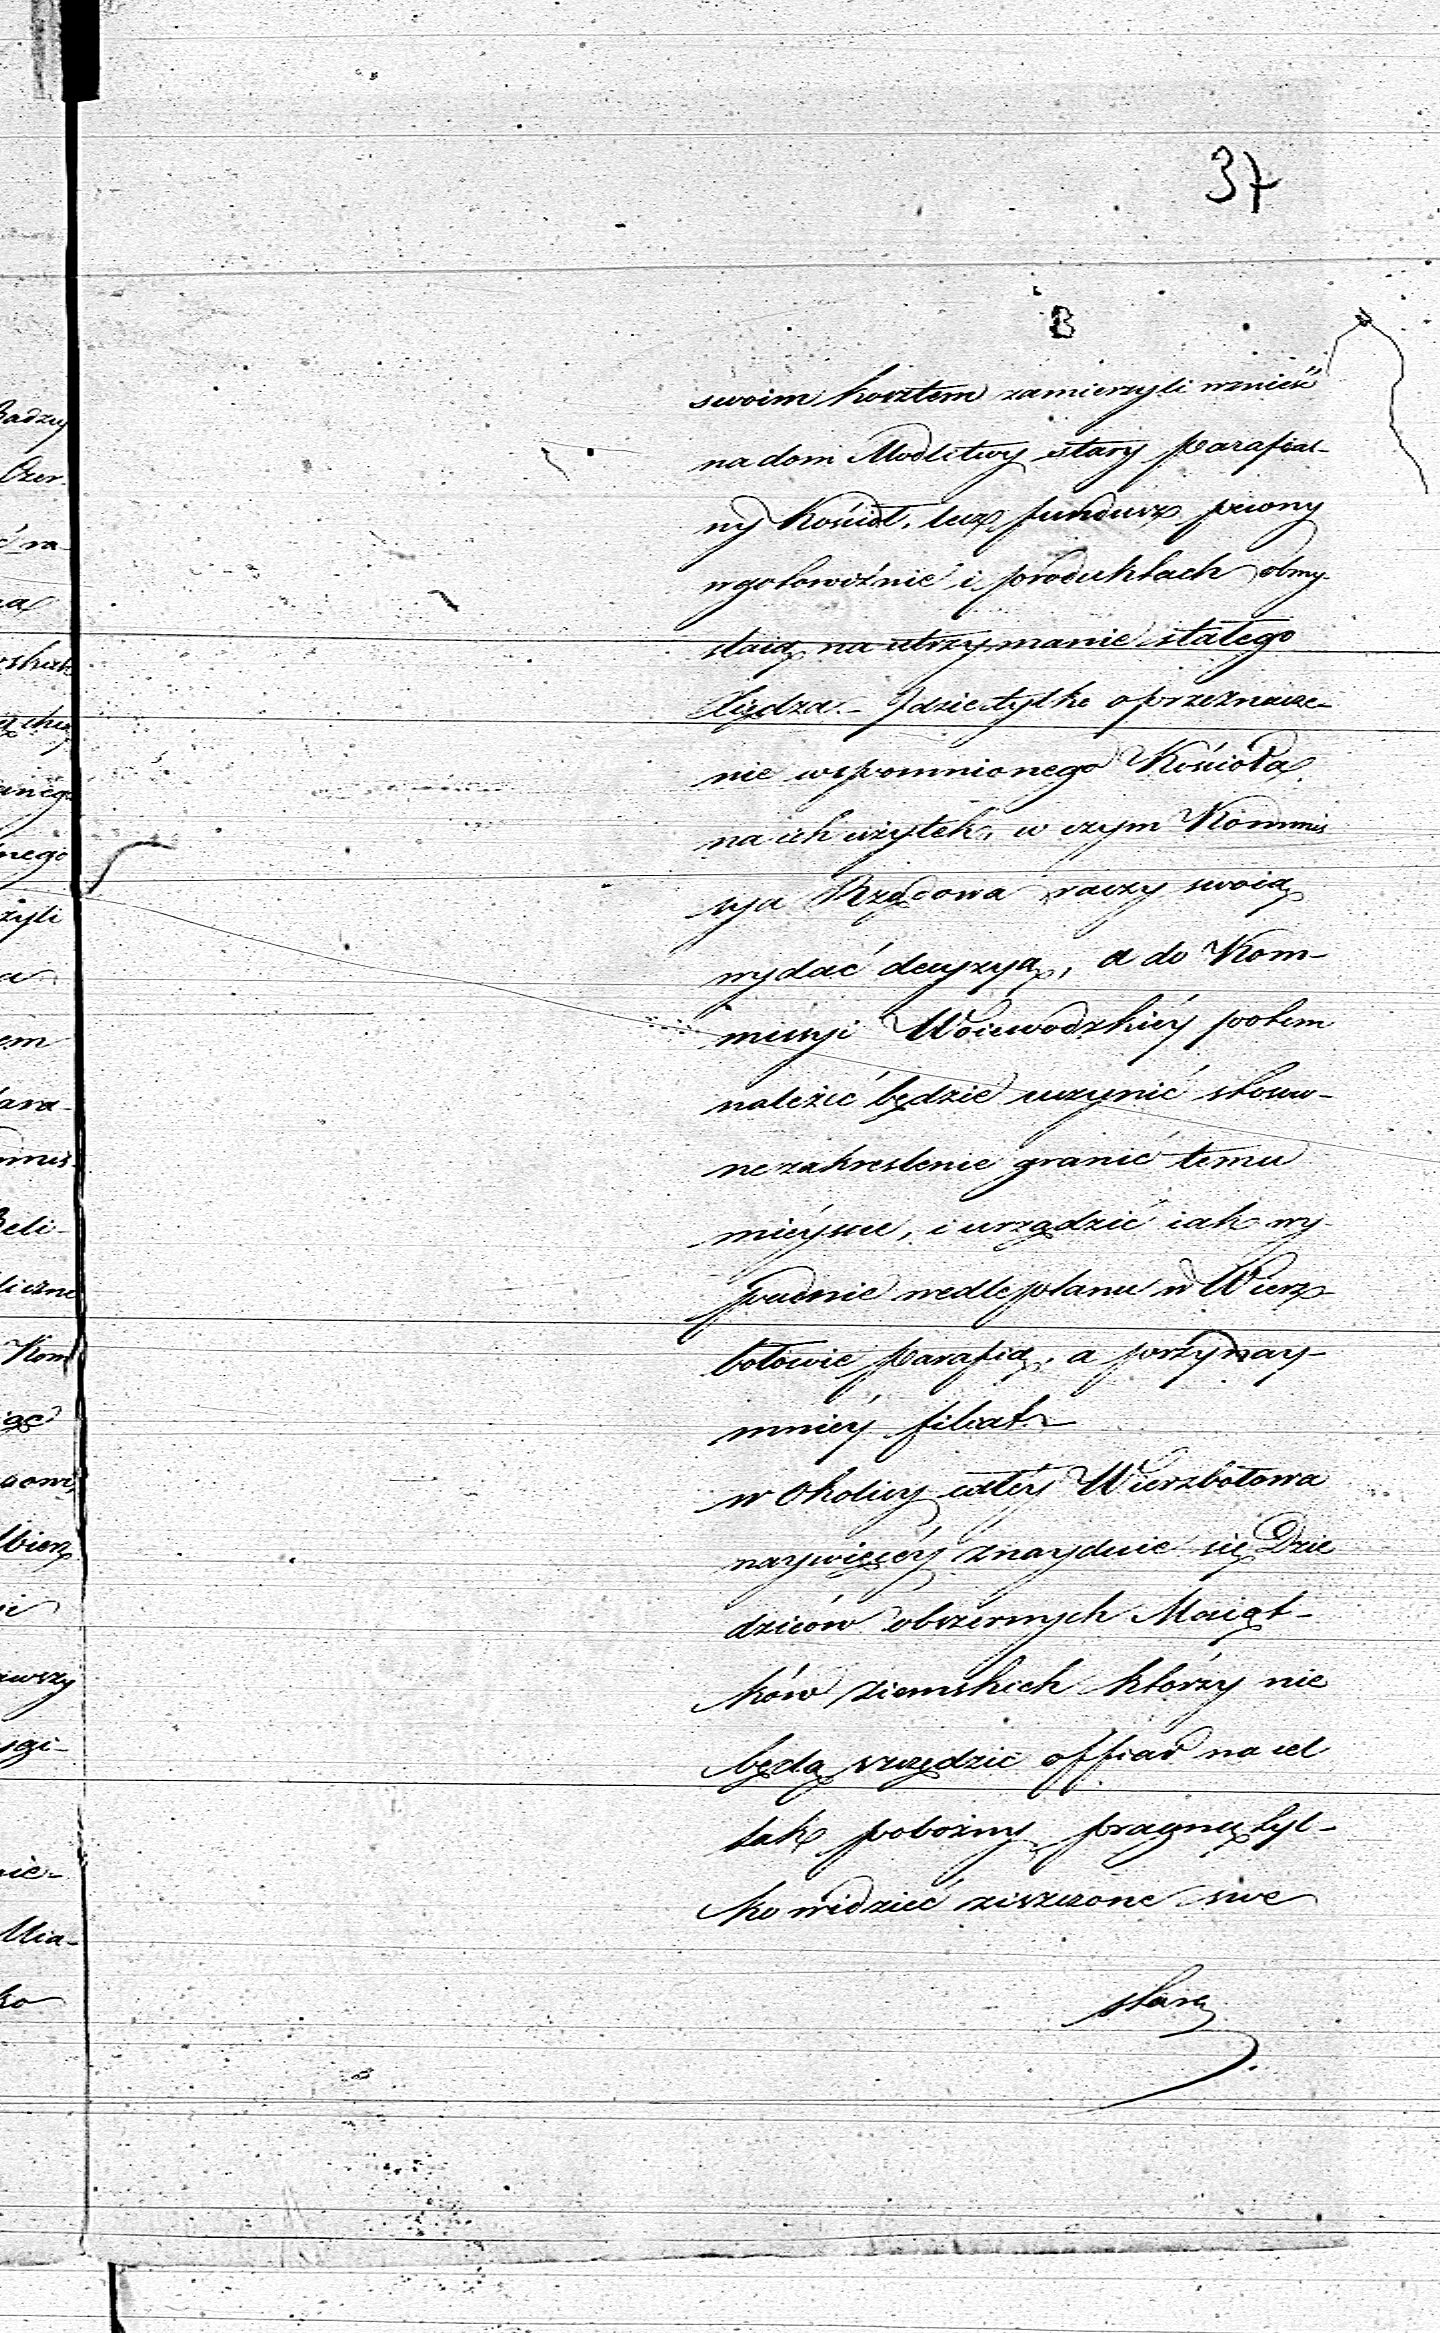 37
B
swoim kosztem zamierzyli wznieść
na dom Modlitwy stary Parafial-
ny Kościoł, lecz fundusz pewny
w gotowiźnie i produktach obmy-
slaią na utrzymanie stałego
Xiędza. - Idzie tylko o przeznacze-
nie wspomnionego Kościoła
na ich użytek, w czym Kommis
sya Rządowa raczy swoią
wydać decyzyą, a do Kom-
missyi Woiewodzkiéy potem
należéć będzie uczynić stosow-
ne zakreslenie granic temu
mieyscu, i urządzić iak wy-
pucnie wedle planu w Wierz-
bołowie Parafią, a przynay-
mniéy filiał. -
w Okolicy całéy Wierzbołowa
naywięcéy znayduie się Dzie
dziców obszernych Maiąt-
ków ziemskich którzy nie
będą szczędzić offiar na cel
tak pobożny, pragną tyl-
ko widzieć ziszczone swe
stare
Radzey
Czer-
ć na-
anego
nego
żyli
em
Para-
mmis-
Beli-
liczne
Kom
iąc
bierz
awszy
nie-
Mia-
ko